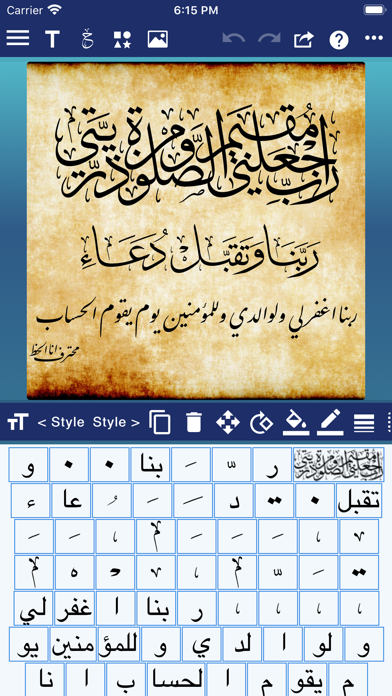 Carrier 6:15 PM
رب اجعلني مقيم الصلوة ومن ذريتي
رَبَّنَا وَتَقَبَّلْ دُعَاءِ
ربنا اغفر لي ولوالدي وللمؤمنين يوم يقوم الحساب
< Style Style >
ر بنا و
تقبل د عا ء
ر بنا ا غفر لي
و لو ا لد ي و للمؤ منين يو
م يقو م ا لحسا ب ا نا